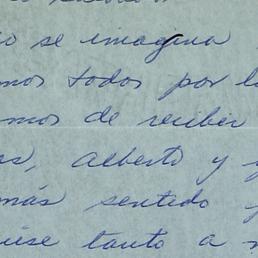 se imagina
mos todos por l
mos de recibir
as, alberto y y
más sentido
uise tanto a